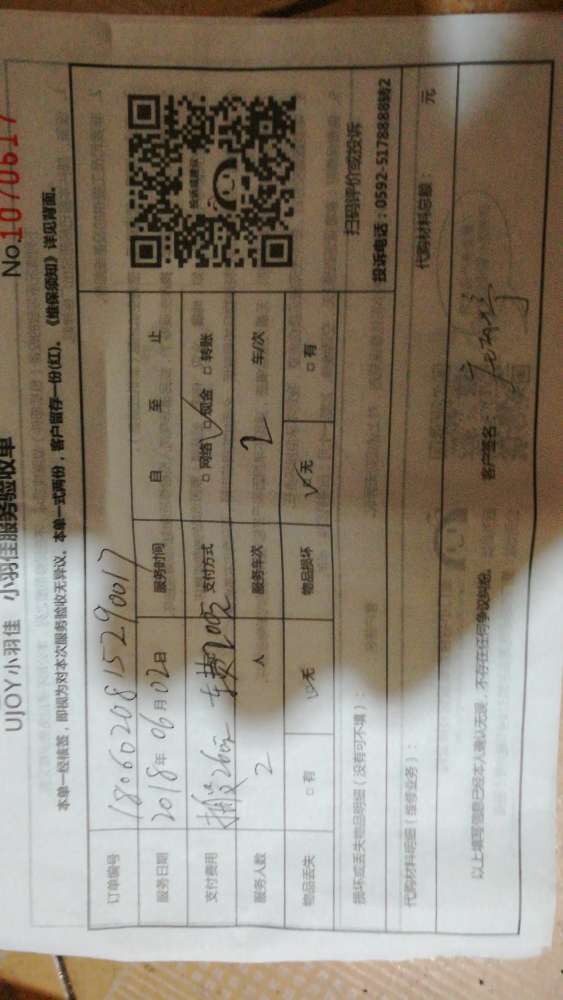 No.1070617
UJOY小羽佳 小羽佳服务验收单
本单一经核签，即视为对本次服务验收无异议。本单一式两份，客户留存一份(红)。《维保须知》详见背面。
订单编号 1806020815290017
服务日期 2018年06月02日 服务时间 自 至 止
支付费用 搬运260元 车费200元 支付方式 □网络 ☑现金 □转账
服务人数 2 人 服务车次 2 车/次
物品丢失 □有 ☑无 物品损坏 ☑无 □有
投诉或建议
扫码评价或投诉
投诉电话：0592-5178888转2
损坏或丢失物品明细（没有可不填）：
代购材料明细（维修业务）： 代购材料总额： 元
以上填写信息已经本人确认无误，不存在任何争议纠纷。 客户签名：